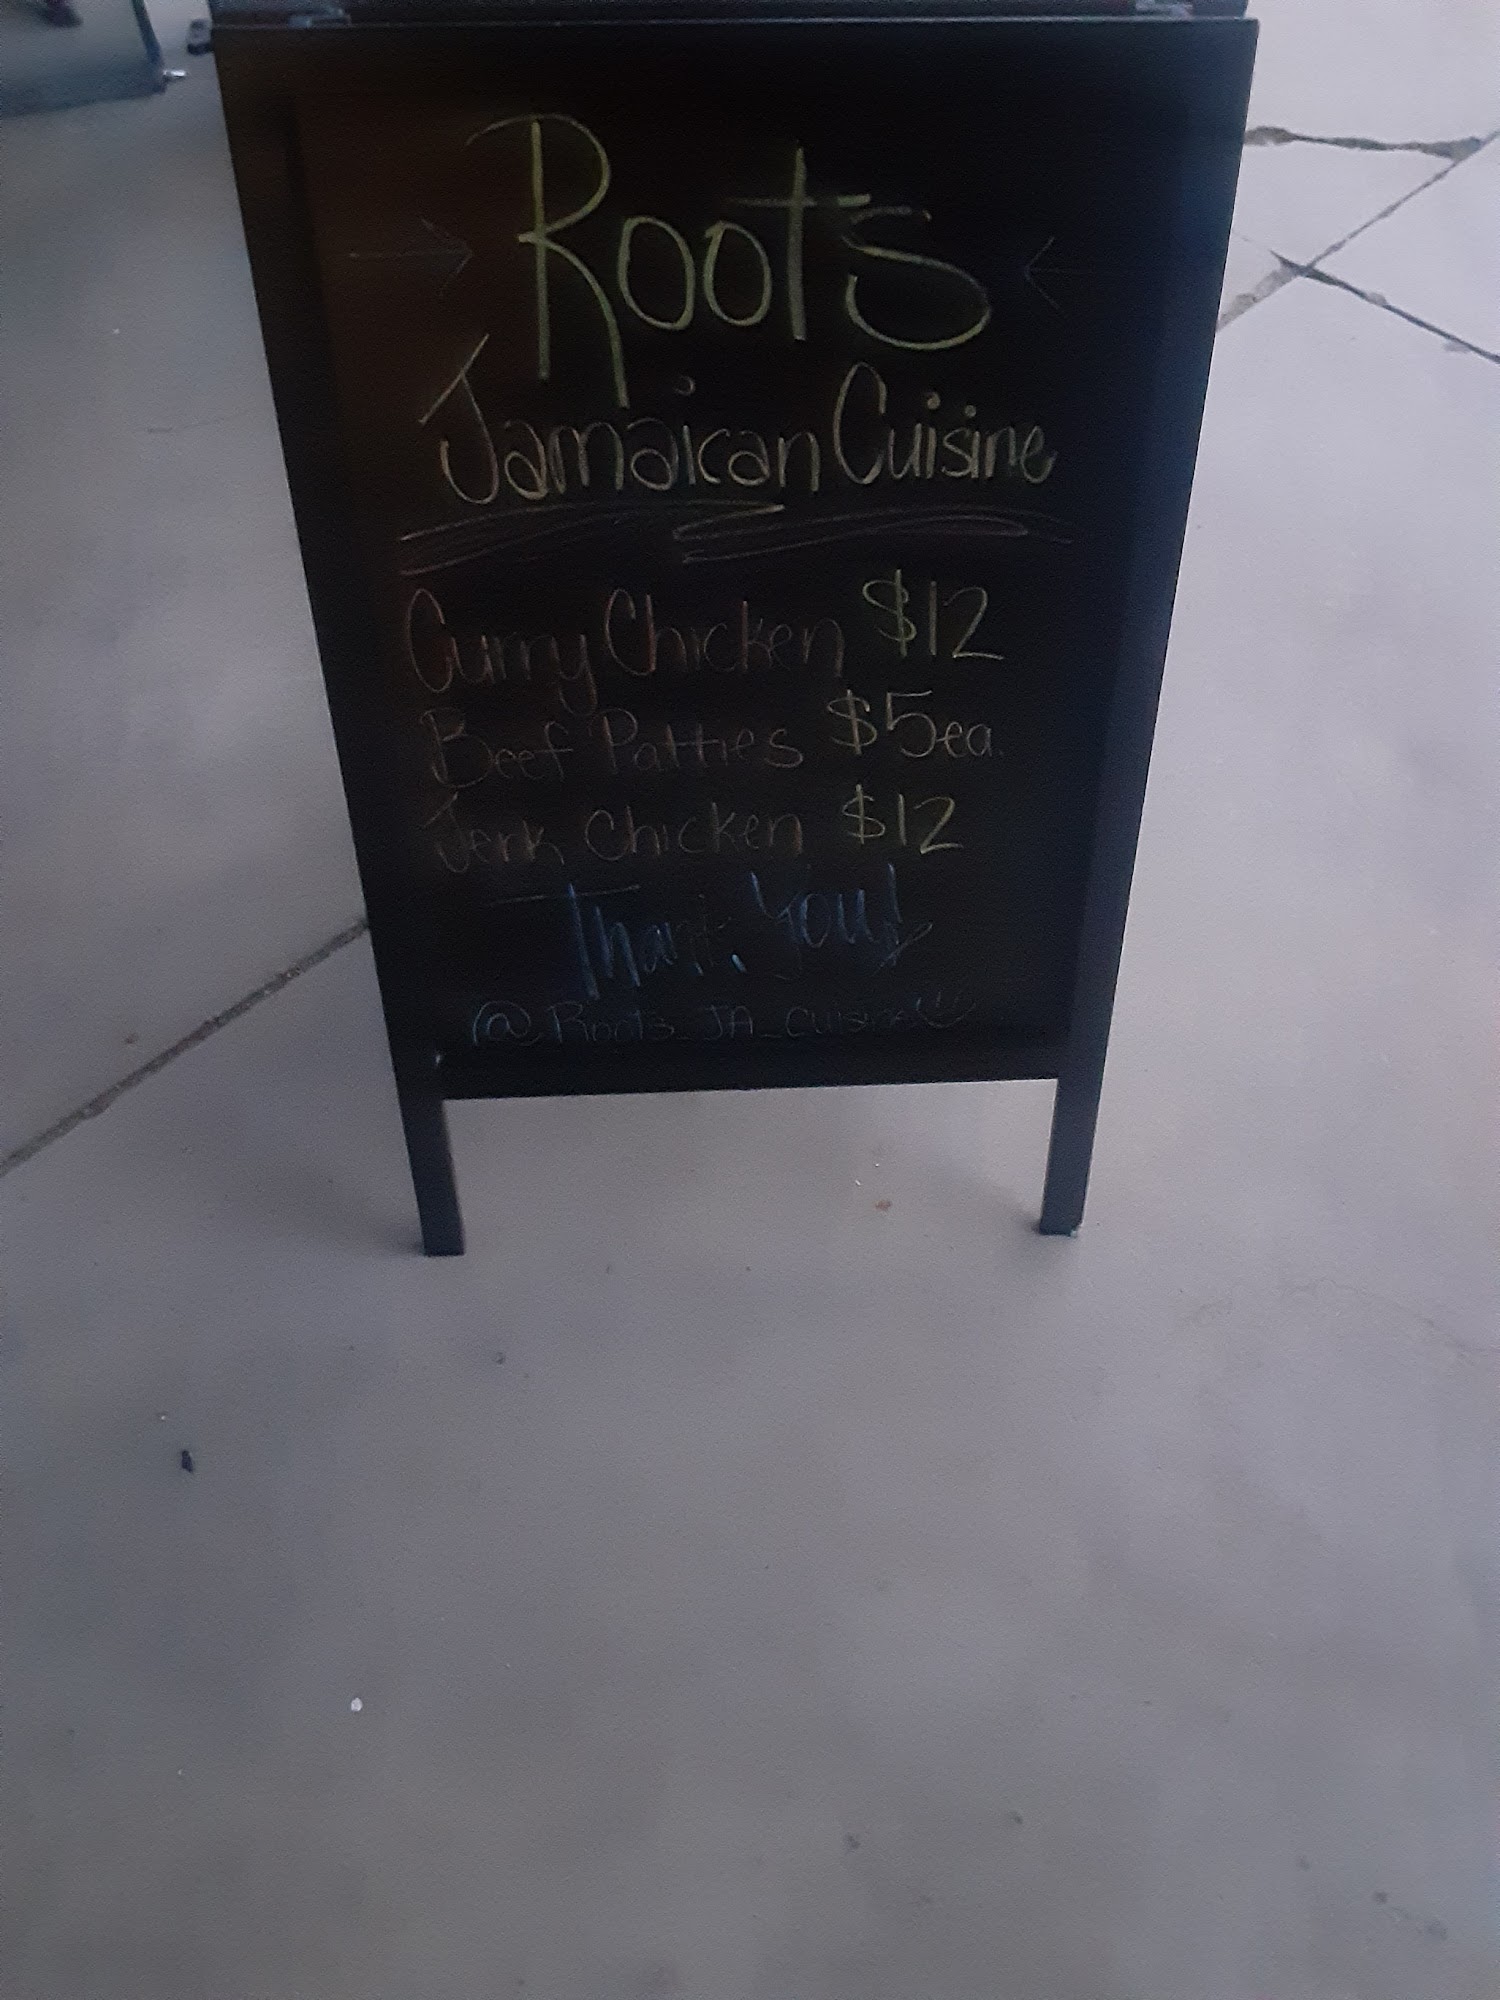 Roots
Jamaican Cuisine
Curry Chicken $12
Beef Patties $5ea.
Jerk Chicken $12
Thank You!
@Roots_JA_cuisine